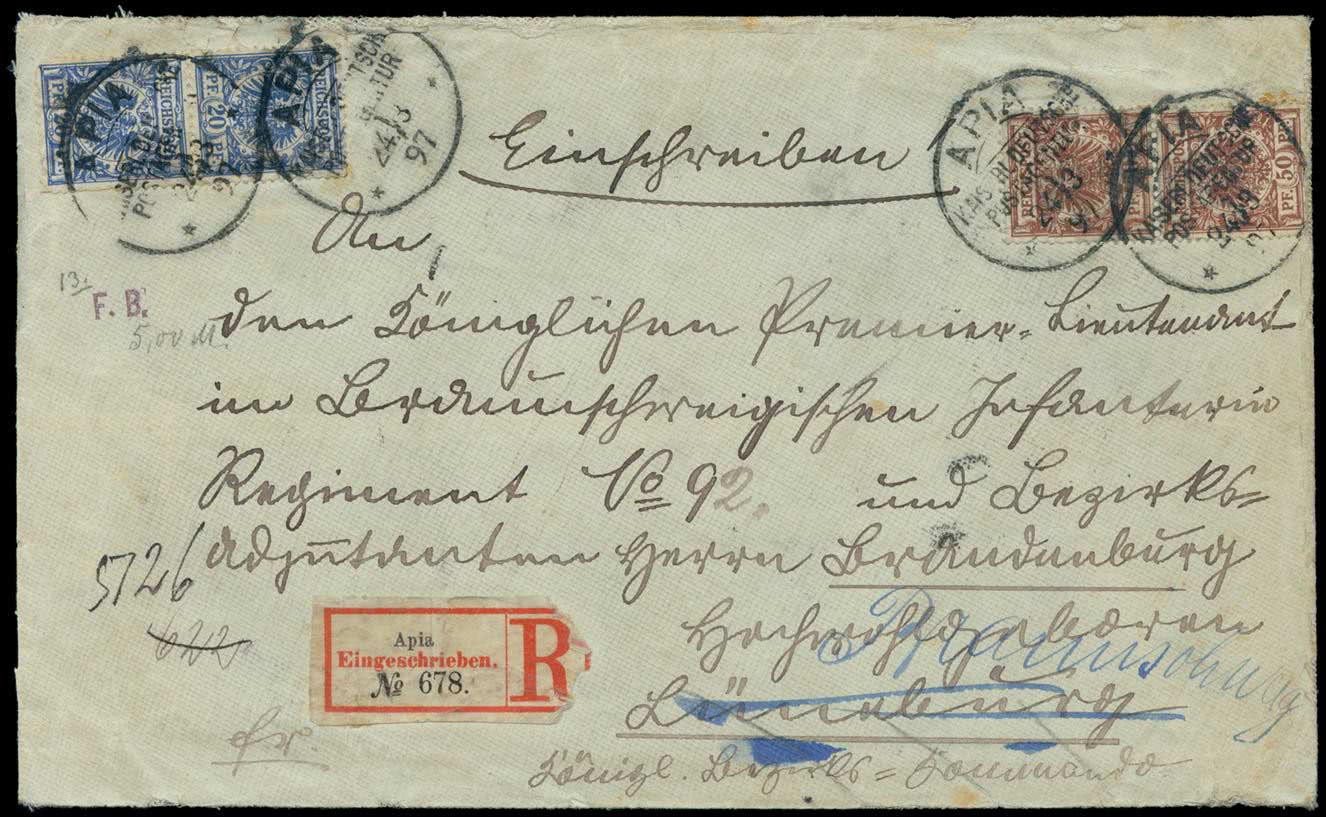 APIA
KAISERL. DEUTSCHE
POSTAGENTUR
24/3
97
REICHSPOST
PF. 20 PF.
PF. 50 PF.
Einschreiben
An
13.
F. B.
5,00 M.
den Königlichen Premier-Lieutenant
im Braunschweigischen Infanterie
Regiment No 92. und Bezirks=
adjutanten Herrn Brandenburg
5726
622
Hochwohlgeboren
Braunschweig
Lüneburg
Apia
Eingeschrieben.
No 678.
R
fr.
Königl. Bezirks=Commando